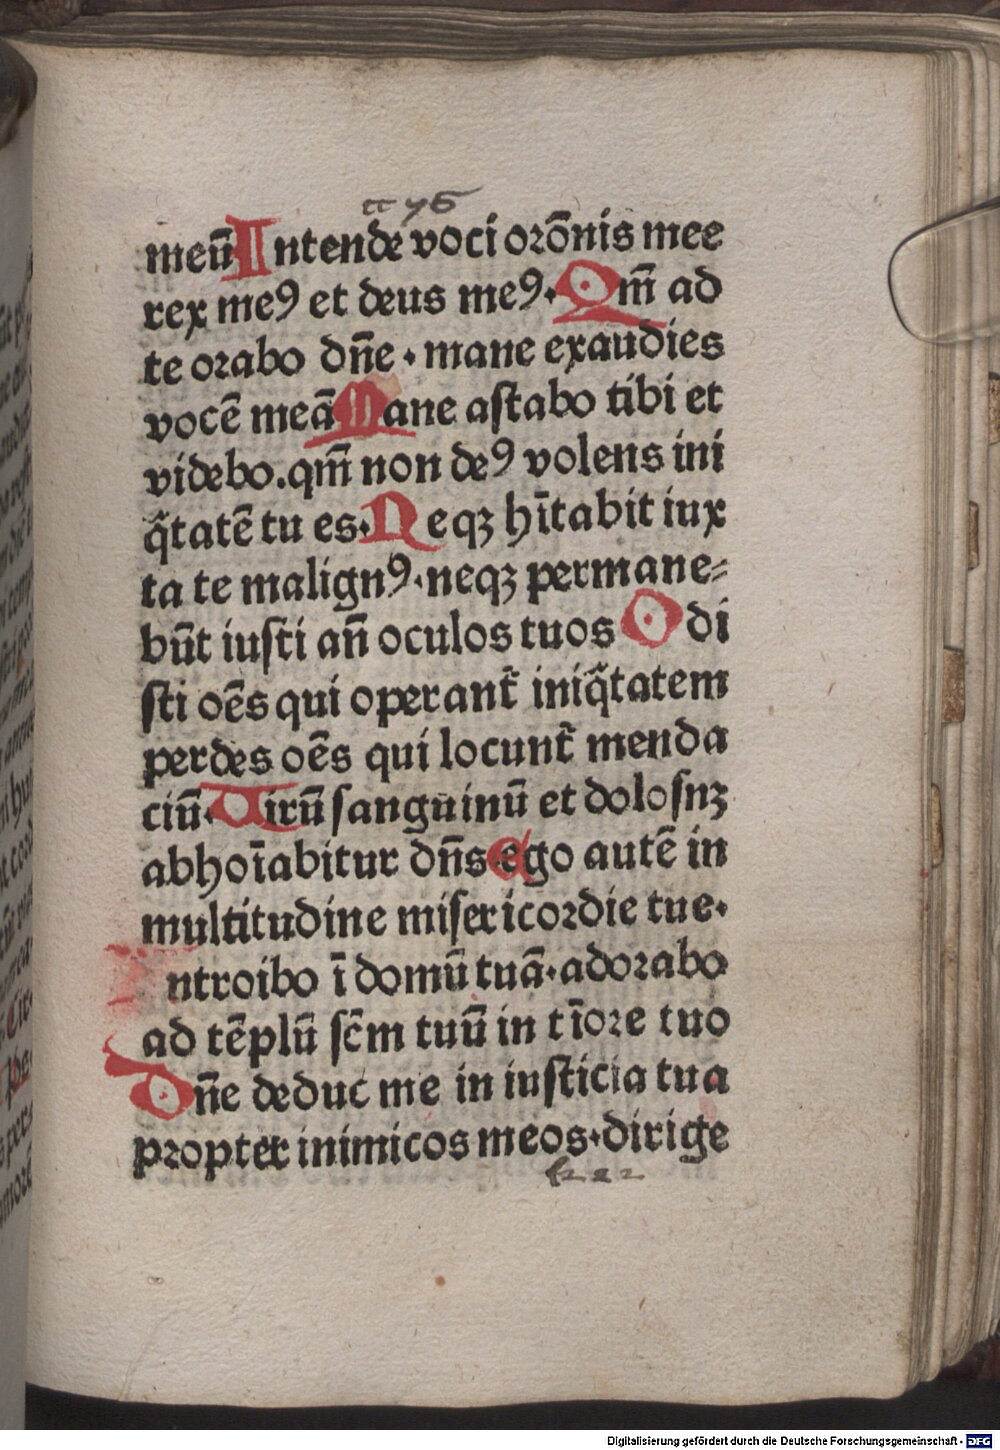 meū Intende voci orōnis mee
rex meꝰ et deus meꝰ. Qm̄ ad
te orabo dn̄e . mane exaudies
vocē meā Mane astabo tibi et
videbo. qm̄ non deꝰ volens ini
q̄tatē tu es. Neqꝫ hītabit iux
ta te malignꝰ. neqꝫ permane⸗
būt iusti an̄ oculos tuos Odi
sti oēs qui operant᷑ iniq̄tatem
perdes oēs qui locunt᷑ menda
ciū. Uirū sanguinū et dolosnꝫ
abhoīabitur dn̄s ego autē in
multitudine misericordie tue.
ntroibo ī domū tuā. adorabo
ad tēplū sc̄m tuū in tīore tuo
Dn̄e deduc me in iusticia tua
propter inimicos meos. dirige
Digitalisierung gefördert durch die Deutsche Forschungsgemeinschaft - DFG